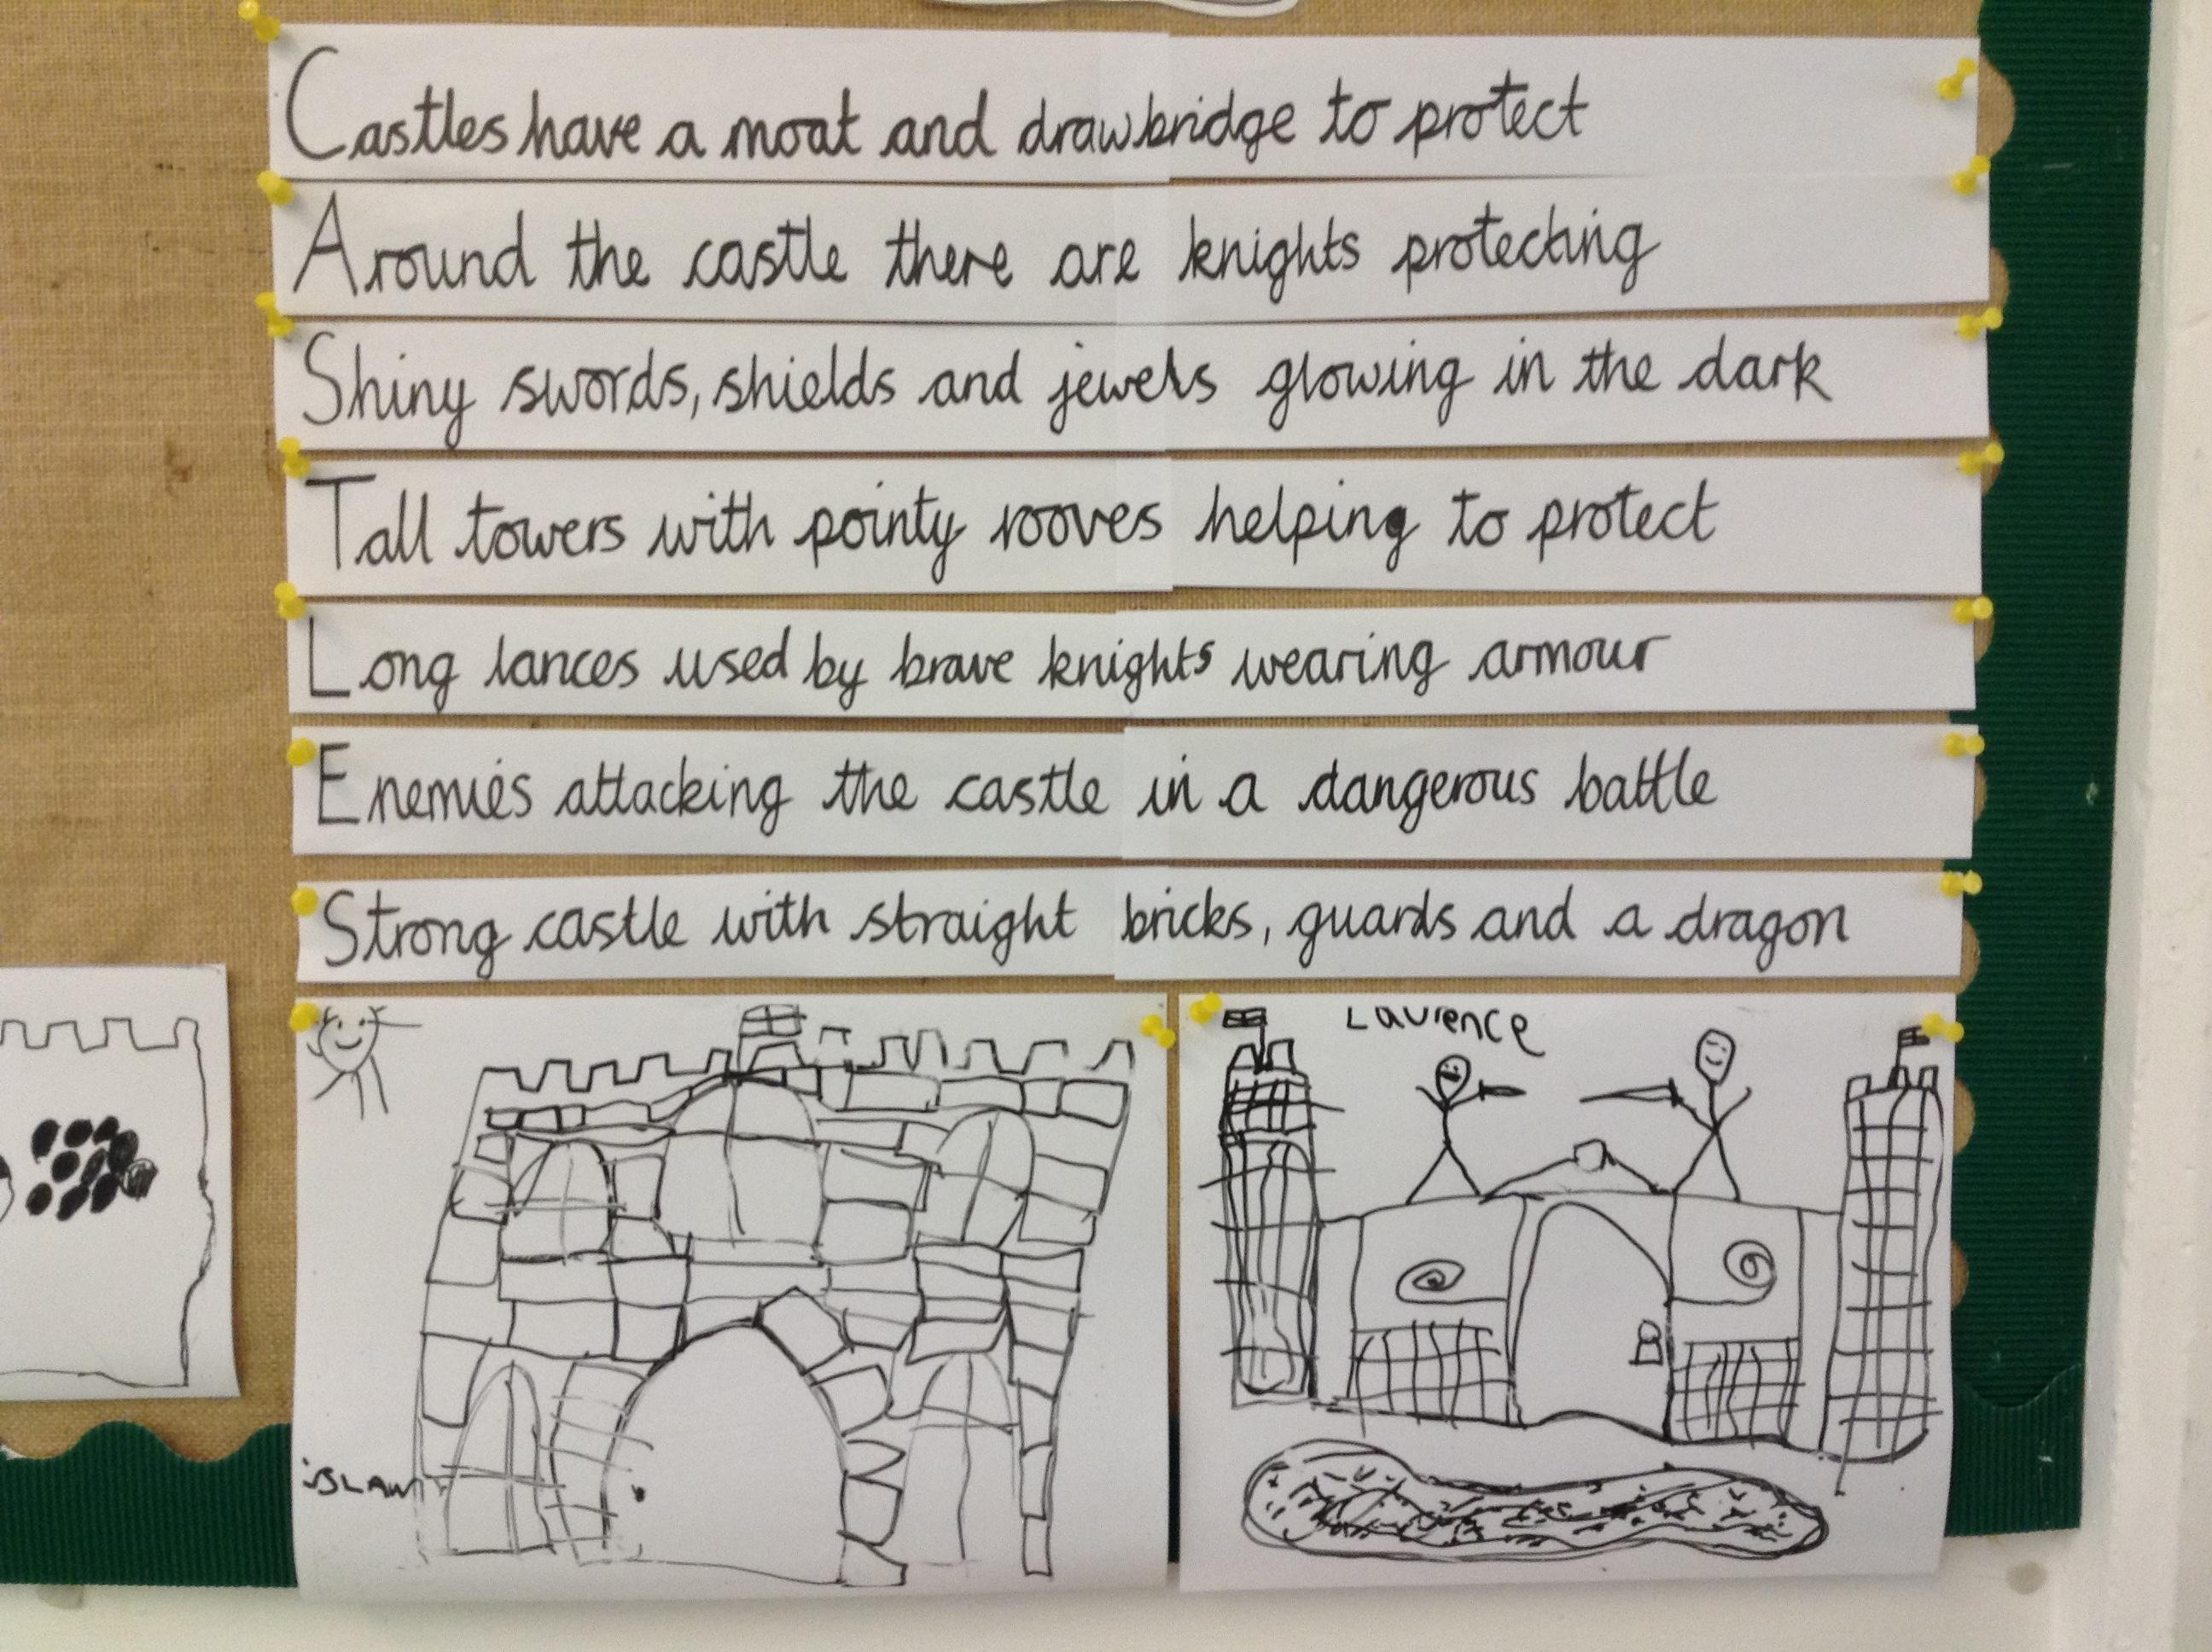 Castles have a moat and drawbridge to protect
Around the castle there are knights protecting
Shiny swords, shields and jewels glowing in the dark
Tall towers with pointy rooves helping to protect
Long lances used by brave knights wearing armour
Enemies attacking the castle in a dangerous battle
Strong castle with straight bricks, guards and a dragon
Laurence
iSLAM